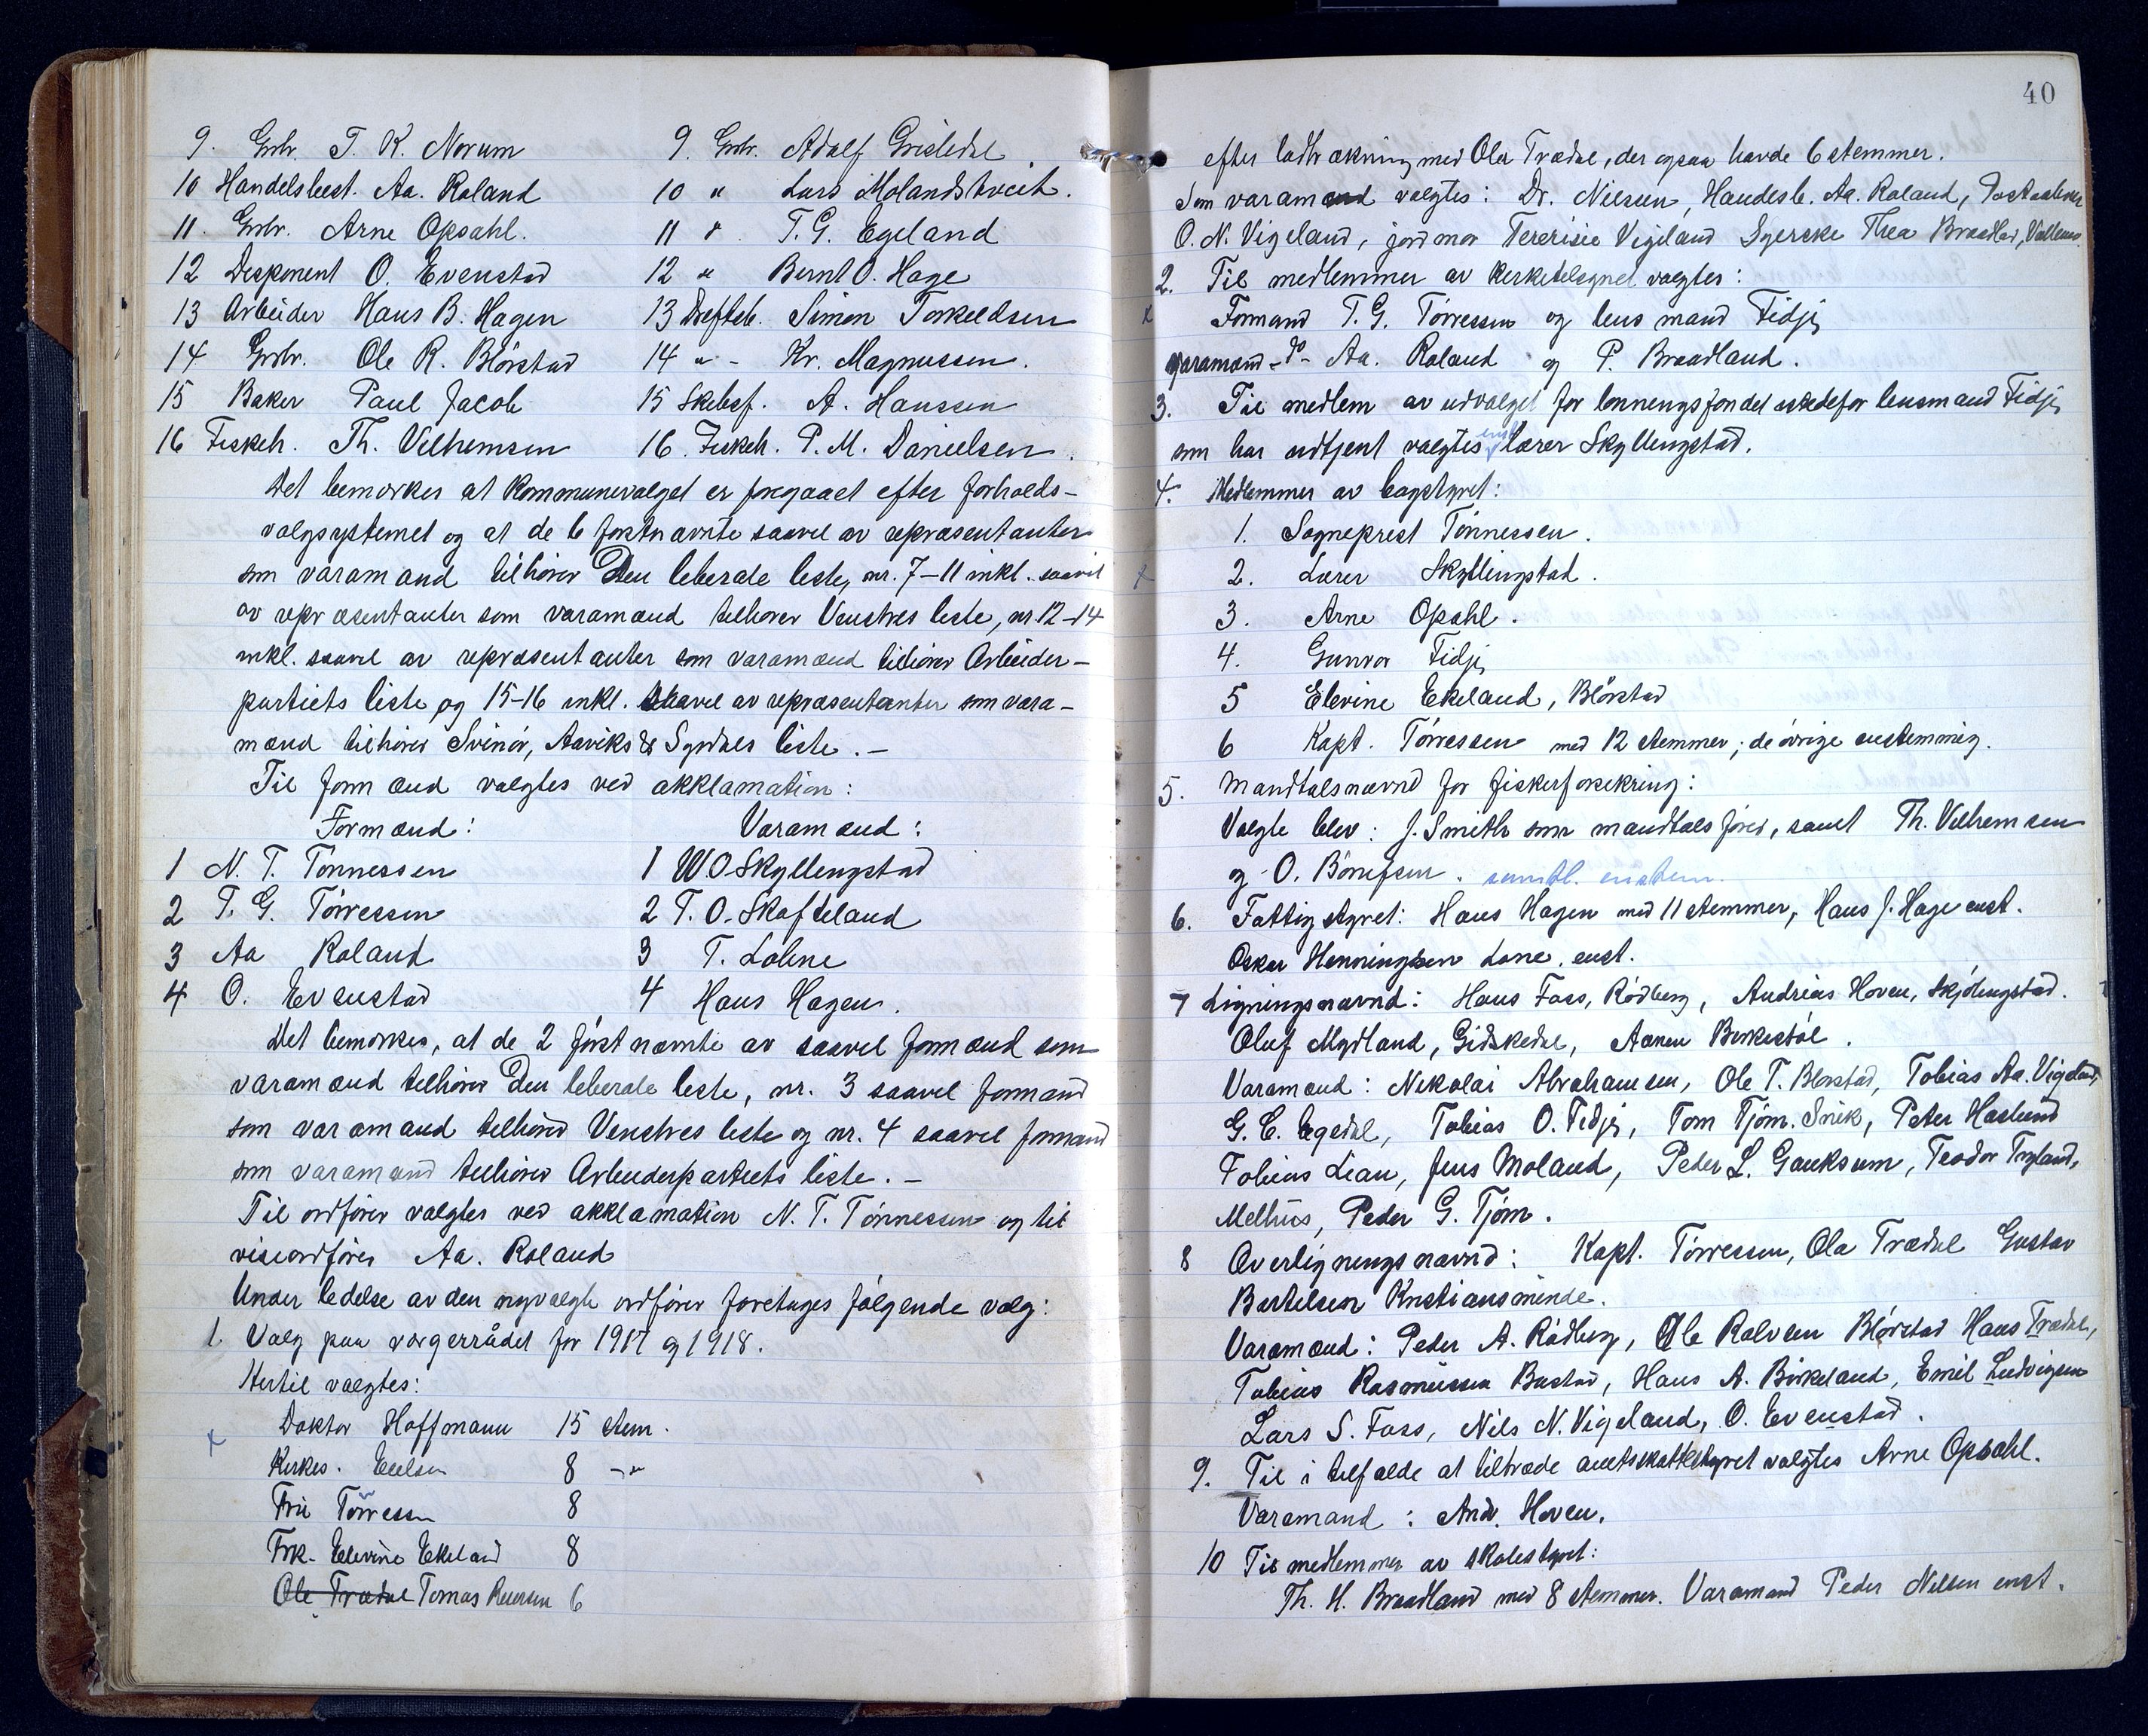 9. Grbr. T. K. Norum 9. Grbr. Adolf Grisledal.
10 Handelsbest. Aa. Roland 10 " Lars Molandskveit.
11. Grbr. Arne Opsahl. 11 " T. G. Egeland
12 Disponent O. Evenstad 12 " Bernt O. Hage
13 Arbeider Hans B. Hagen 13 Simon Torkeldsen
14 Grbr. Ole R. Blörstad 14 " - Kr. Magnussen.
15 Baker Paul Jacob 15 Skibsf. A. Hanssen
16 Fiskeh. Th. Vilhemsen 16. Fiskeh. P. M. Danielsen.
Det bemerkes at kommunevalget er foregaaet efter forholds-
valgsystemet og at de 6 förstnævnte saavel av repræsentanter
som varamænd tilhörer Den liberale liste, nr. 7-11 inkl. saavel
av repræsentanter som varamænd tilhörer Venstres liste, nr. 12-14
inkl. saavel av repræsentanter som varamænd tilhörer Arbeider-
partiets liste og 15-16 inkl. saavel av repræsentanter som vara-
mænd tilhörer Svinör, Aaviks & Syrdals liste. -
Til formænd valgtes ved akklamation:
Formænd: Varamænd:
1 N. T. Tönnessen 1 W O Skyllingstad
2 T. G. Törressen 2 T. O. Skofteland
3 Aa Roland 3 T. Lohne
4 O. Evenstad 4 Hans Hagen.
Det bemerkes, at de 2 först nævnte av saavel formænd som
varamænd tilhörer Den liberale liste, nr. 3 saavel formand
som varamand tilhörer Venstres liste og nr. 4 saavel formand
som varamand tilhörer Arbeiderpartiets liste. -
Til ordförer valgtes ved akklamation N. T. Tönnessen og til
viseordförer Aa. Roland
Under ledelse av den nyvalgte ordförer foretages fölgende valg:
1. Valg paa vergerrådet for 1917 og 1918.
Hertil valgtes:
x Doktor Hoffmann 15 stem.
Kirkes. Eielsen 8 -"-
Fru Törressen 8
Frk. Elevine Ekeland 8
Ole Trædal Tomas Reiersen 6
40
efter lodtrækning med Ola Trædal, der ogsaa havde 6 stemmer.
Som varamænd valgtes: Dr. Nielsen, Handelsb. Aa. Roland, Postaabner
O. N. Vigeland, jordmor Vigeland Syerske Thea Braadland,
2. Til medlemmer av kirketilsynet valgtes:
x Formand T. G. Törressen og lensmand Fidje
varamænd -do- Aa. Roland og P. Braadland.
3. Til medlem av udvalget for lönningsfondet istedefor lensmand Fidje
som har udtjent valgtes enst. lærer Skyllingstad.
4. Medlemmer av bogstyret:
1. Sogneprest Tönnessen.
x 2. Lærer Skyllingstad.
3. Arne Opsahl.
4. Gunvor Fidje
5 Elevine Ekeland, Blörstad
6 Kapt. Törressen med 12 stemmer; de övrige enstemmig.
5. Mandtalsnævnd for fiskerforsikring:
Valgte blev: J. Smith som mandtalsförer, samt Th. Vilhemsen
og O. Börufsen. samtl. enstem.
6. Fattigstyret: Hans Hagen med 11 stemmer, Hans J. Hage enst.
Oskar Henningsen Lone, enst.
7 Ligningsnævnd: Hans Foss, Rödberg, Andreas Hoven, Skjölingstad.
Oluf Mydland, Gidskedal, Aanen Birkestöl.
Varamænd: Nikolai Abrahamsen, Ole T. Blörstad, Tobias Aa. Vigeland,
G. C. Egedal, Tobias O. Fidje, Tom Tjöm. Snik, Peter Haslund
Tobias Lian, Jens Moland, Peder L. Gauksum, Teodor Tryland,
Melhus, Peder G. Tjöm.
8 Overligningsnævnd: Kapt. Törressen, Ola Trædal Gustav
Bertelsen Kristiansminde.
Varamænd: Peder A. Rödberg, Ole Rolvsen Blörstad Hans Trædal,
Tobias Rasmussen Bustad, Hans A. Birkeland, Emil Ludvigsen
Lars S. Foss, Nils N. Vigeland, O. Evenstad.
9. Til i tilfælde at tiltræde amtsskattestyret valgtes Arne Opsahl.
Varamand: And. Hoven.
10 Til medlemmer av skolestyret:
Th. H. Braadland med 8 stemmer. Varamand Peder Nilsen enst.